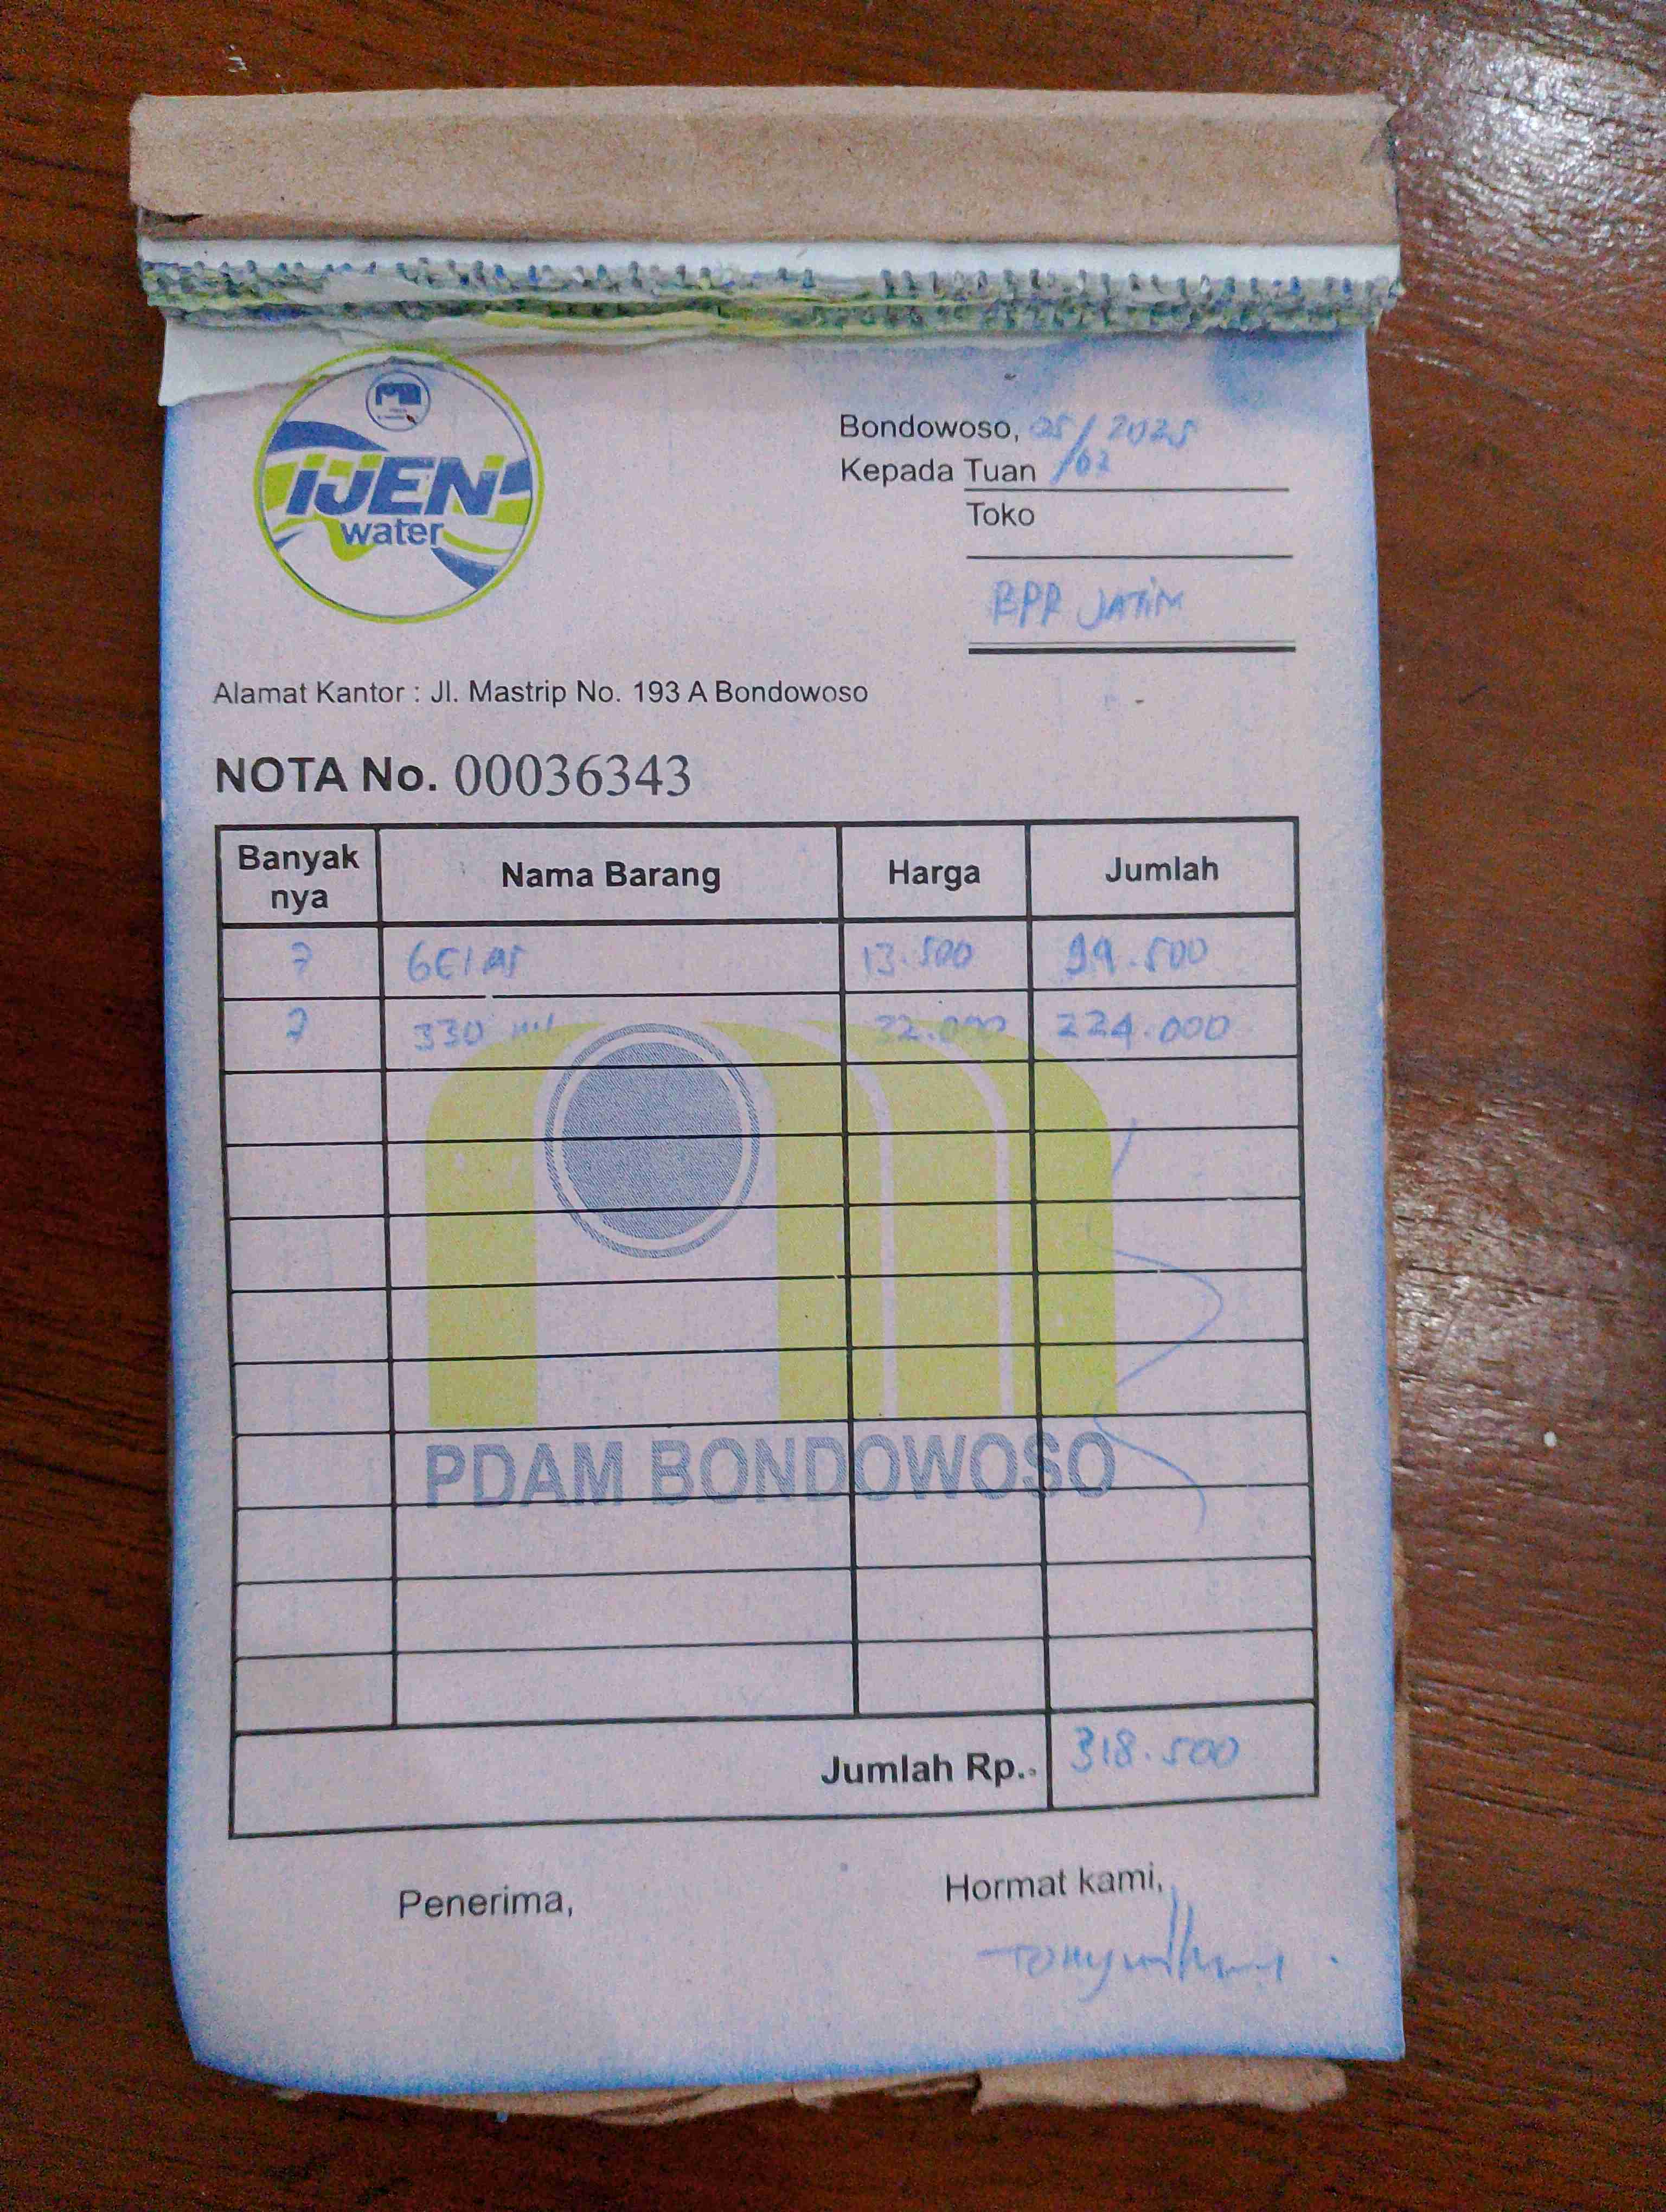 IJEN
water
Bondowoso, 05/02 2025
Kepada Tuan
Toko
BPR JATIM
Alamat Kantor : Jl. Mastrip No. 193 A Bondowoso
NOTA No. 00036343
Banyak nya Nama Barang Harga Jumlah
7 GELAS 13.500 94.500
7 330 ml 32.000 224.000
PDAM BONDOWOSO
Jumlah Rp. 318.500
Penerima, Hormat kami,